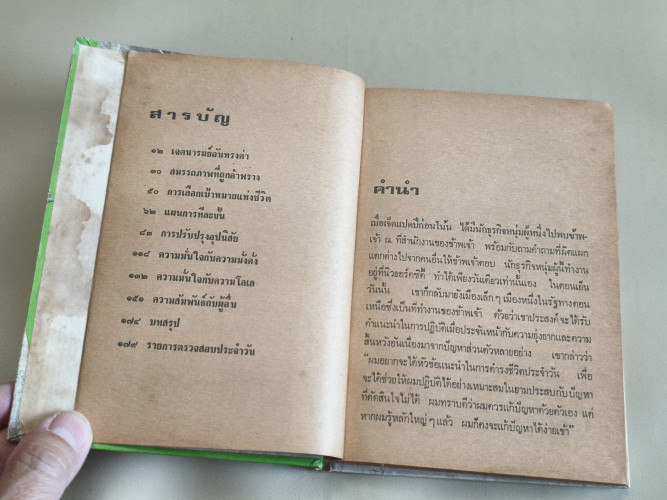 สารบัญ
๑๒ เจตนารมย์อันทรงค่า
๓๐ สมรรถภาพที่ถูกอำพราง
๕๐ การเลือกเป้าหมายแห่งชีวิต
๖๒ แผนการทีละขั้น
๘๓ การปรับปรุงอุปนิสัย
๑๑๘ ความมั่นใจกับความมั่งคั่ง
๑๓๒ ความมั่นใจกับความโลเล
๑๕๑ ความสัมพันธ์กับผู้อื่น
๑๗๔ บทสรุป
๑๗๙ รายการตรวจสอบประจำวัน
คำนำ
เมื่อเจ็ดแปดปีก่อนโน้น ได้มีนักธุรกิจหนุ่มผู้หนึ่งไปพบข้าพ-
เจ้า ณ ที่สำนักงานของข้าพเจ้า พร้อมกับถามคำถามที่ผิดแผก
แตกต่างไปจากคนอื่นให้ข้าพเจ้าตอบ นักธุรกิจหนุ่มผู้นี้ทำงาน
อยู่ที่นิวยอร์คซิตี้ ทำได้เพียงวันเดียวเท่านั้นเอง ในตอนเย็น
วันนั้น เขาก็กลับมายังเมืองเล็กๆ เมืองหนึ่งในรัฐทางตอน
เหนือซึ่งเป็นที่ทำงานของข้าพเจ้า ด้วยว่าเขาประสงค์จะได้รับ
คำแนะนำในการปฏิบัติเมื่อประจันหน้ากับความยุ่งยากและความ
สิ้นหวังอันเนื่องมาจากปัญหาส่วนตัวหลายอย่าง เขากล่าวว่า
“ผมอยากจะได้หัวข้อแนะนำในการดำรงชีวิตประจำวัน เพื่อ
จะได้ช่วยให้ผมปฏิบัติได้อย่างเหมาะสมในยามประสบกับปัญหา
ที่ตัดสินใจไม่ได้ ผมทราบดีว่าผมควรแก้ปัญหาด้วยตัวเอง แต่
หากผมรู้หลักใหญ่ๆ แล้ว ผมก็คงจะแก้ปัญหาได้ง่ายเข้า”